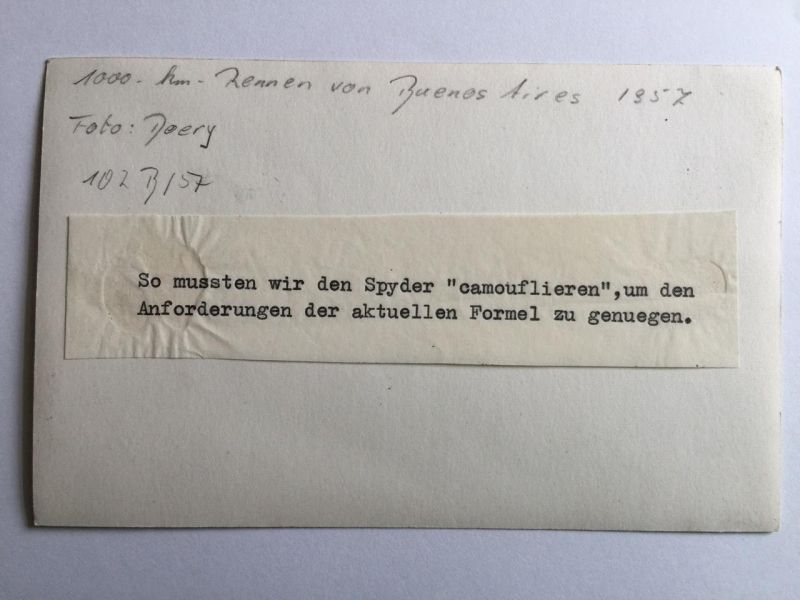 1000-km-Rennen von Buenos Aires 1957
Foto: Doery
102 B/57
So mussten wir den Spyder "camouflieren",um den
Anforderungen der aktuellen Formel zu genuegen.